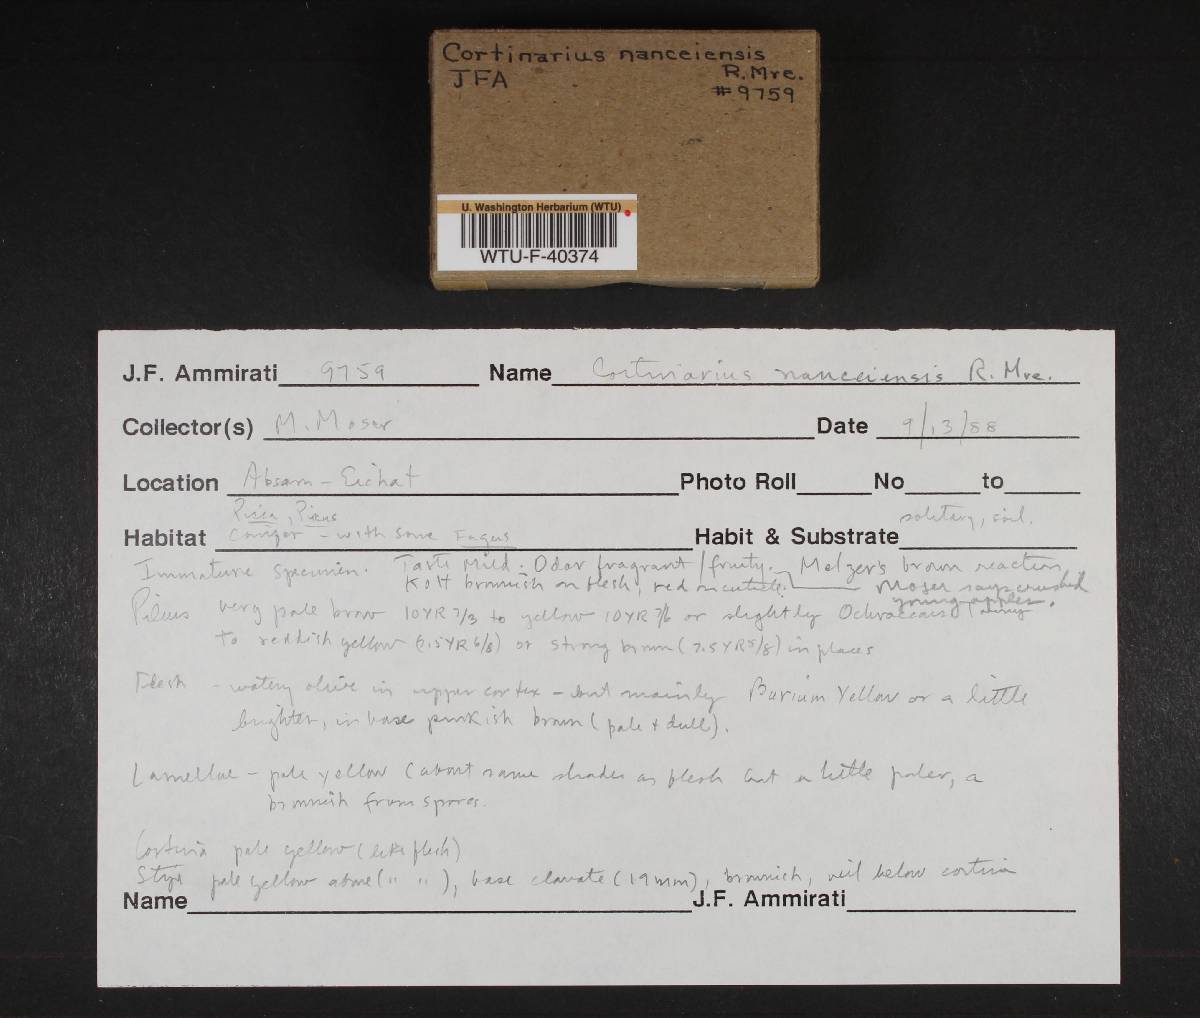 Cortinarius nanceiensis
JFA R. Mre.
#9759
U. Washington Herbarium (WTU)
WTU-F-40374
J.F. Ammirati 9759 Name Cortinarius nanceiensis R. Mre.
Collector(s) M. Moser Date 9/13/88
Location Absam - Eichat Photo Roll No to
Picea, Pinus solitary, soil.
Habitat Conifer - with some Fagus Habit & Substrate
Immature specimen. Taste Mild. Odor fragrant/fruity. Melzer's brown reaction
KOH brownish on flesh, red on cuticle. Moser says crushed
young apples.
Pileus very pale brown 10YR 7/3 to yellow 10YR 7/6 or slightly Ochraceous
to reddish yellow (7.5YR 6/8) or strong brown (7.5YR 5/8) in places
Flesh - watery olive in upper cortex - but mainly Barium Yellow or a little
brighter, in base pinkish brown (pale & dull).
Lamellae - pale yellow (about same shades as flesh but a little paler, a
brownish from spores.
Cortina pale yellow (like flesh)
Stipe pale yellow above (" "), base clavate (19mm), brownish, veil below cortina
Name J.F. Ammirati